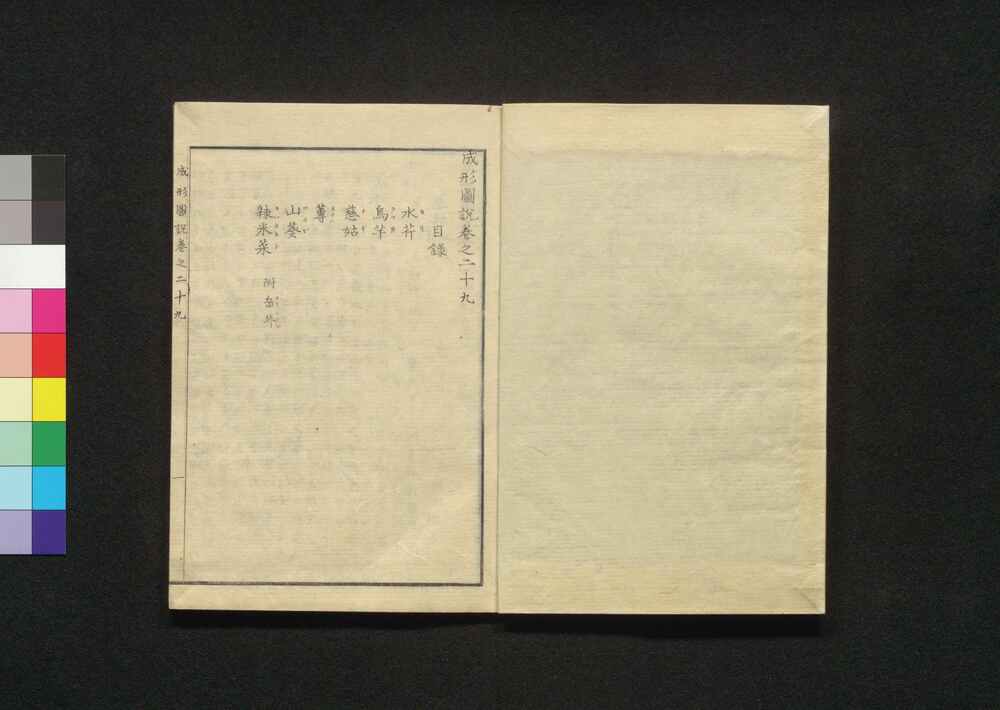 成形圖說卷之二十九
目錄
水芹
烏芋
慈姑
蓴
山葵
辣米菜 附
成形圖說卷之二十九